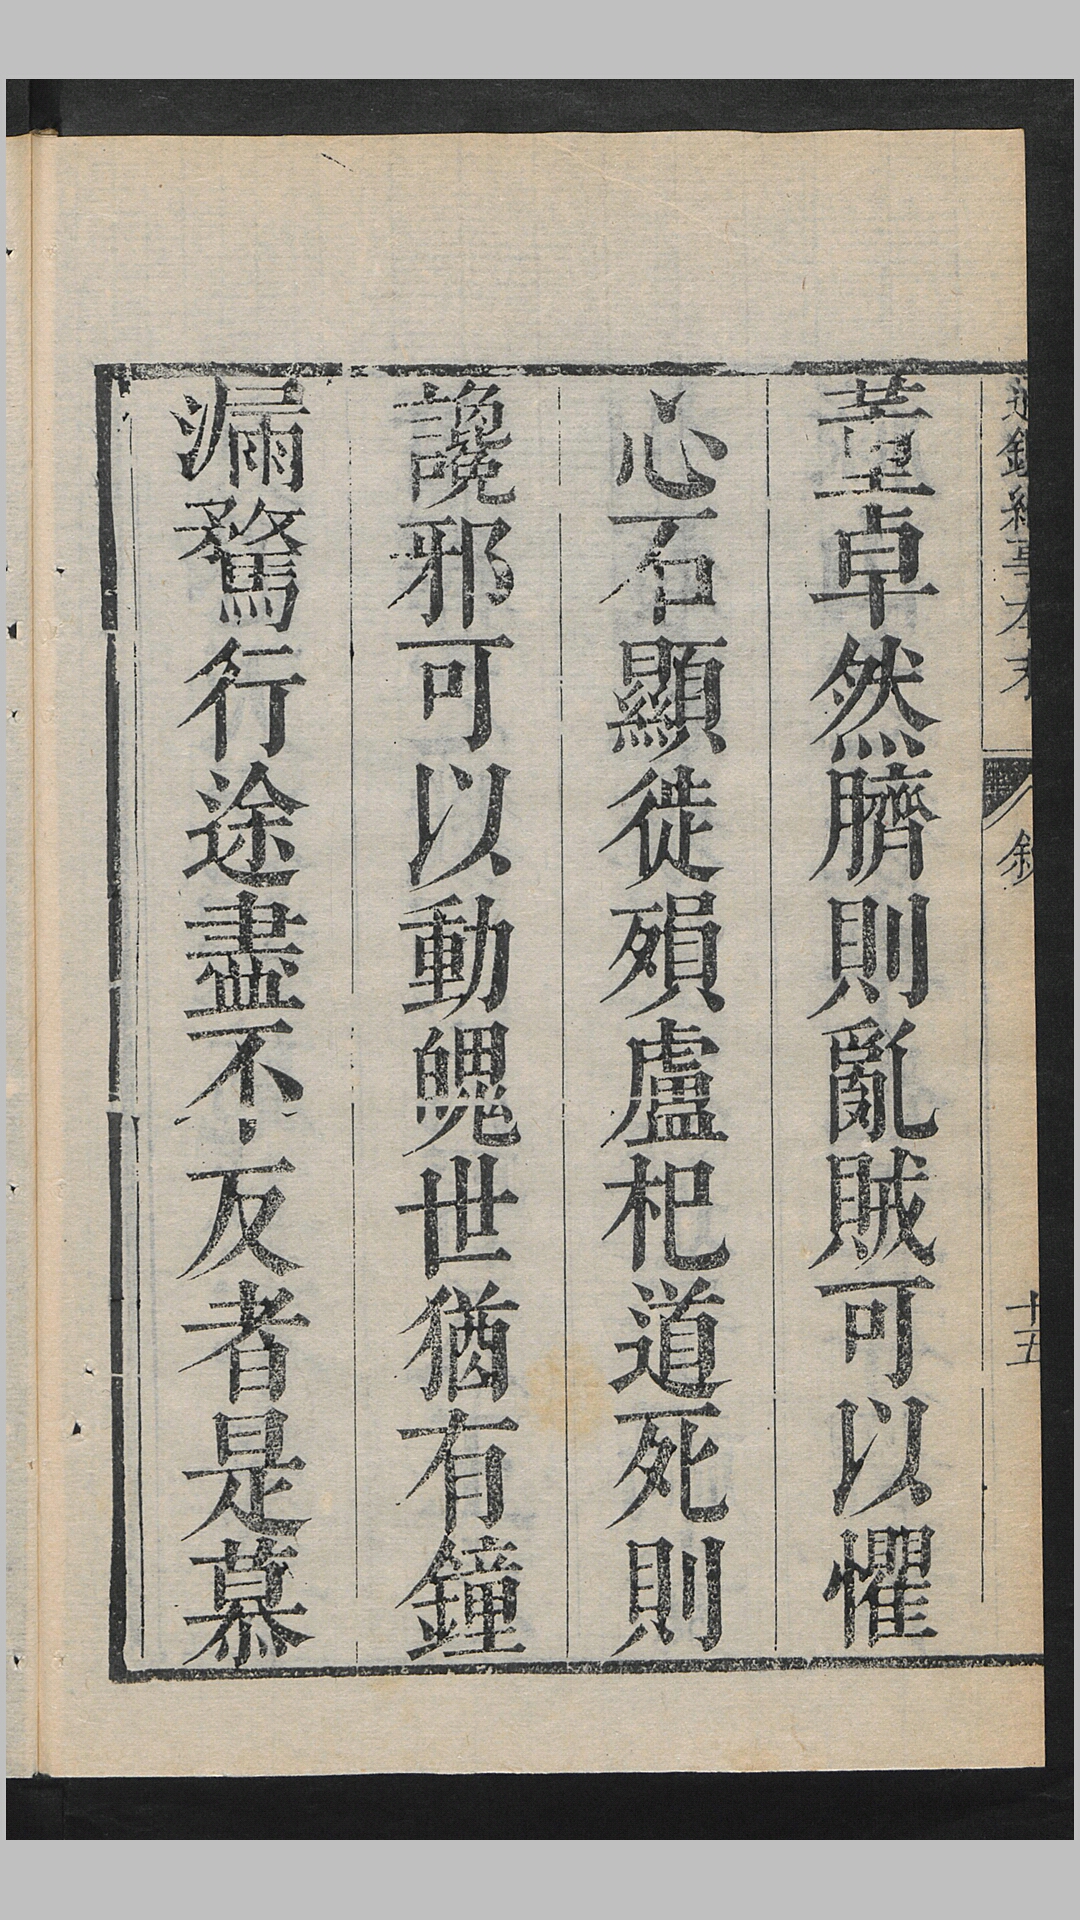 通鑑紀事本末
敘
十五
董卓然臍則亂賊可以懼
心石顯徙殞盧杞道死則
讒邪可以動魄世猶有鐘
漏騖行途盡不反者是慕